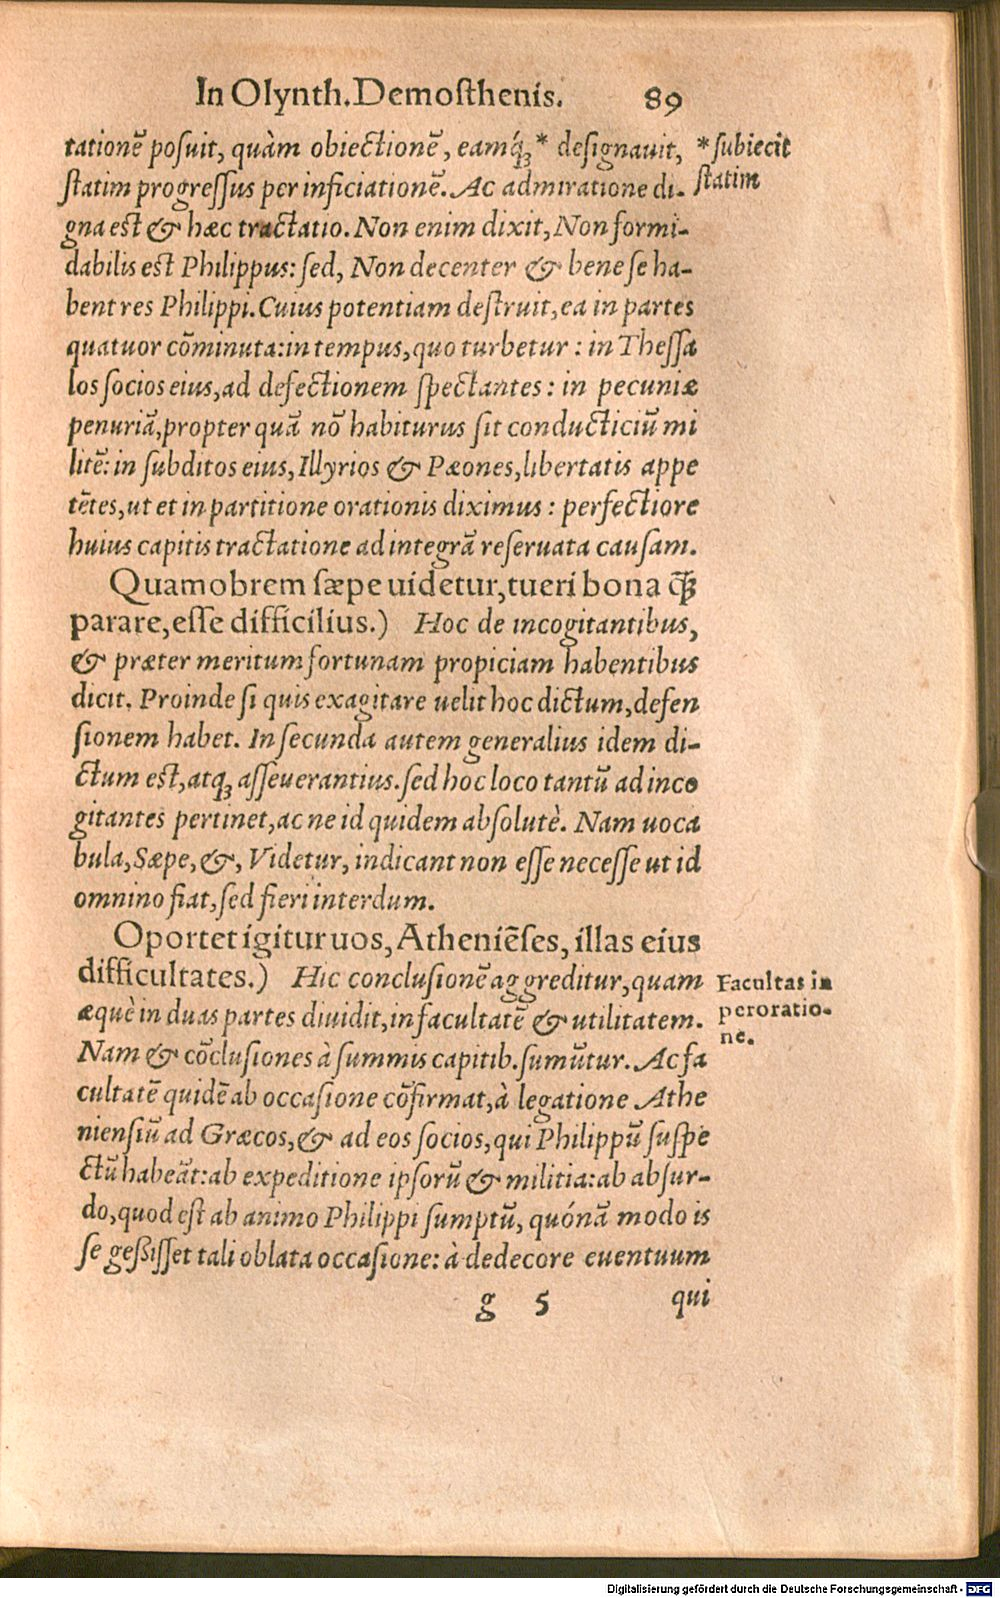 In Olynth. Demosthenis. 89
tationẽ posuit, quàm obiectionẽ, eamq́; * designauit, * subiecit
statim progressus per inficiationẽ. Ac admiratione di- statim
gna est & hæc tractatio. Non enim dixit, Non formi-
dabilis est Philippus: sed, Non decenter & bene se ha-
bent res Philippi. Cuius potentiam destruit, ea in partes
quatuor cõminuta: in tempus, quo turbetur: in Thessa
los socios eius, ad defectionem spectantes: in pecuniæ
penuriã, propter quã nõ habiturus sit conducticiũ mi
litẽ: in subditos eius, Illyrios & Pæones, libertatis appe
tẽtes, ut et in partitione orationis diximus: perfectiore
huius capitis tractatione ad integrã reseruata causam.
Quamobrem sæpe uidetur, tueri bona q̃;
parare, esse difficilius.) Hoc de incogitantibus,
& præter meritum fortunam propiciam habentibus
dicit. Proinde si quis exagitare uelit hoc dictum, defen
sionem habet. In secunda autem generalius idem di-
ctum est, atq; asseuerantius. sed hoc loco tantũ ad inco
gitantes pertinet, ac ne id quidem absolutè. Nam uoca
bula, Sæpe, &, Videtur, indicant non esse necesse ut id
omnino fiat, sed fieri interdum.
Oportet igitur uos, Atheniẽses, illas eius
difficultates.) Hic conclusionẽ aggreditur, quam Facultas in
æquè in duas partes diuidit, in facultatẽ & utilitatem. peroratio-
ne.
Nam & cõclusiones à summis capitib. sumũtur. Ac fa
cultatẽ quidẽ ab occasione cõfirmat, à legatione Athe
niensiũ ad Græcos, & ad eos socios, qui Philippũ suspe
ctũ habeãt: ab expeditione ipsorũ & militia: ab absur-
do, quod est ab animo Philippi sumptũ, quónã modo is
se geßisset tali oblata occasione: à dedecore euentuum
g 5 qui
Digitalisierung gefördert durch die Deutsche Forschungsgemeinschaft - DFG